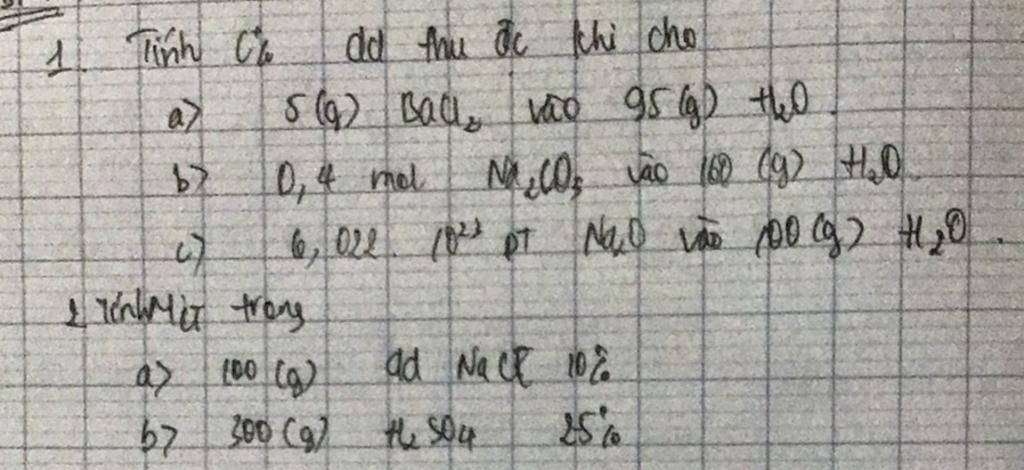 1. Tính C% dd thu đc khi cho
a) 5 (g) BaCl₂ vào 95 (g) H₂O.
b) 0,4 mol Na₂CO₃ vào 160 (g) H₂O.
c) 6,022. 10²³ PT Na₂O vào 100 (g) H₂O.
2 Tính trong
a) 100 (g) dd NaCl 10%
b) 300 (g) H₂SO₄ 25%